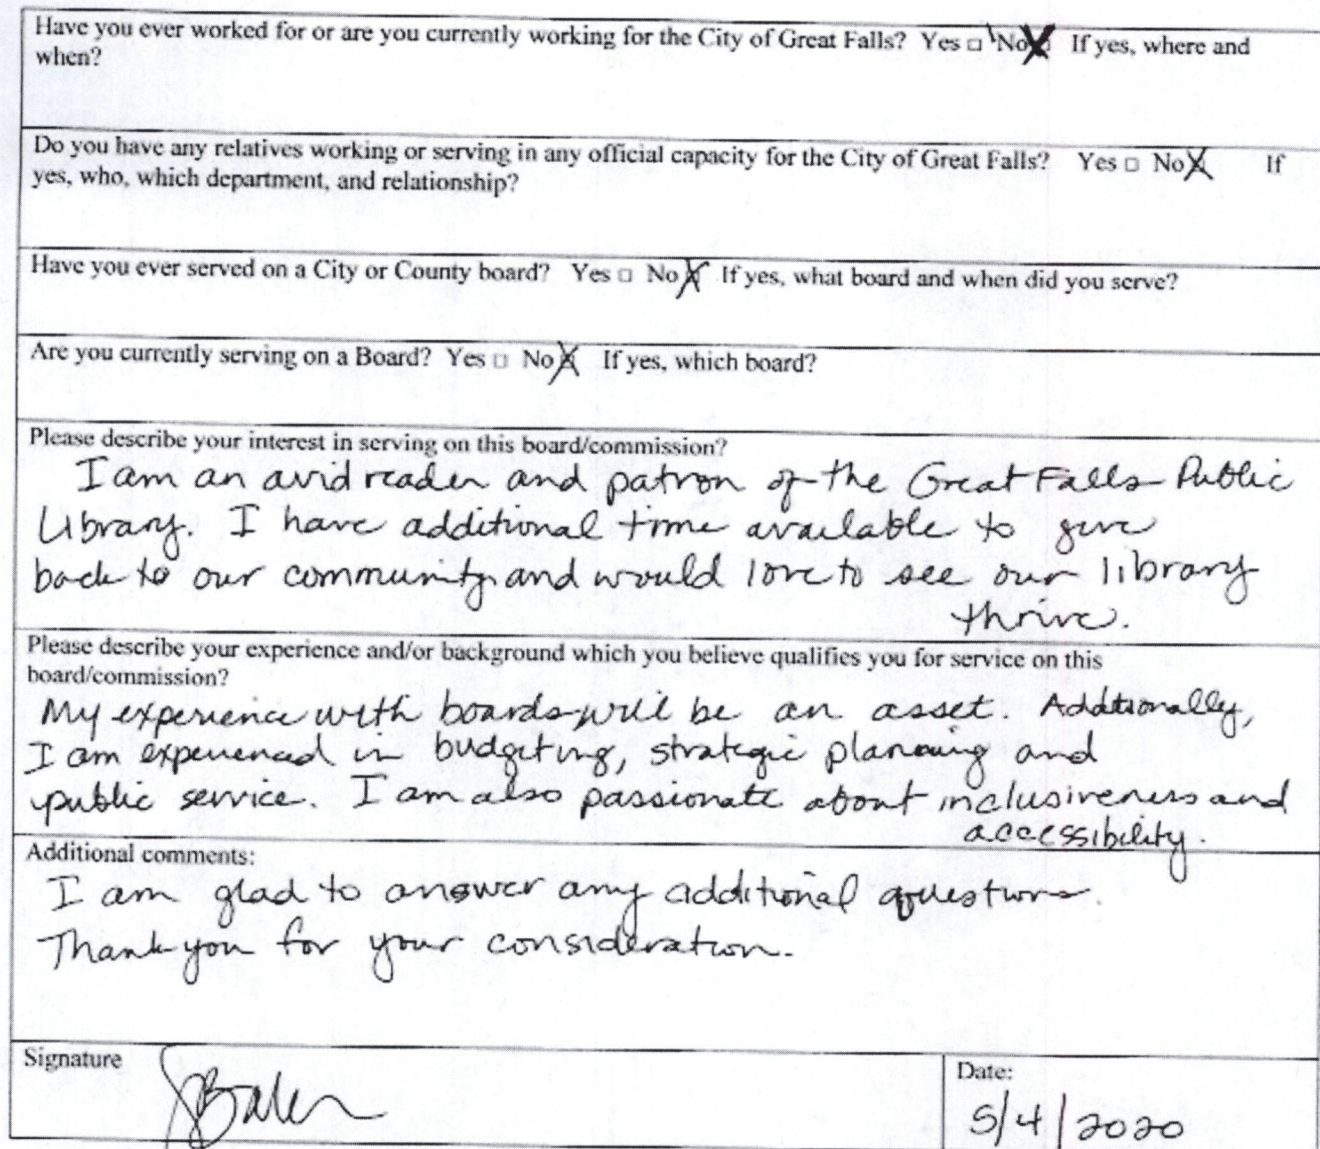 Have you ever worked for or are you currently working for the City of Great Falls? Yes □ No☒ If yes, where and
when?
Do you have any relatives working or serving in any official capacity for the City of Great Falls? Yes □ No☒ If
yes, who, which department, and relationship?
Have you ever served on a City or County board? Yes □ No☒ If yes, what board and when did you serve?
Are you currently serving on a Board? Yes □ No☒ If yes, which board?
Please describe your interest in serving on this board/commission?
I am an avid reader and patron of the Great Falls Public
Library. I have additional time available to give
back to our community and would love to see our library
thrive.
Please describe your experience and/or background which you believe qualifies you for service on this
board/commission?
My experience with boards will be an asset. Additionally,
I am experienced in budgeting, strategic planning and
public service. I am also passionate about inclusiveness and
accessibility.
Additional comments:
I am glad to answer any additional questions.
Thank you for your consideration.
Signature
Date:
5/4/2020